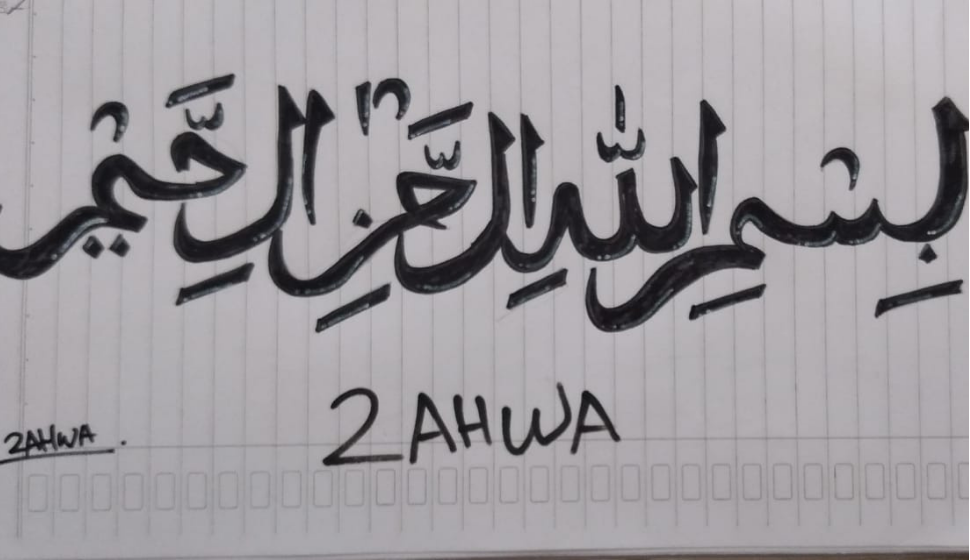 بِسْمِ اللّٰهِ الرَّحْمٰنِ الرَّحِيْمِ
ZAHWA
ZAHWA.